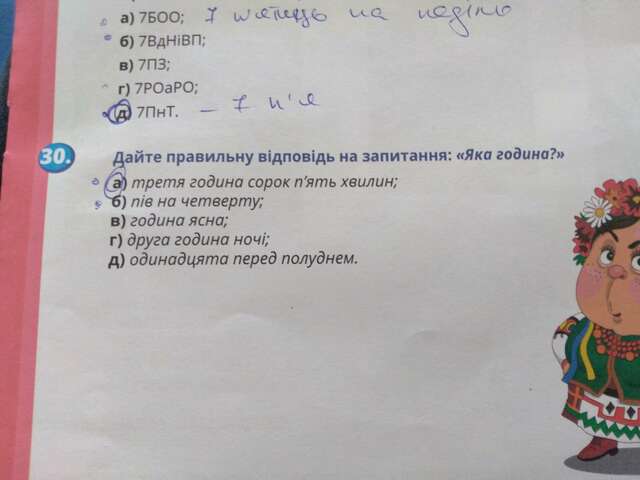 а) 7БОО; 7 п'ятниць на неділю
б) 7ВдНіВП;
в) 7ПЗ;
г) 7РОаРО;
д) 7ПнТ. – 7 п'я
30. Дайте правильну відповідь на запитання: «Яка година?»
а) третя година сорок п’ять хвилин;
б) пів на четверту;
в) година ясна;
г) друга година ночі;
д) одинадцята перед полуднем.